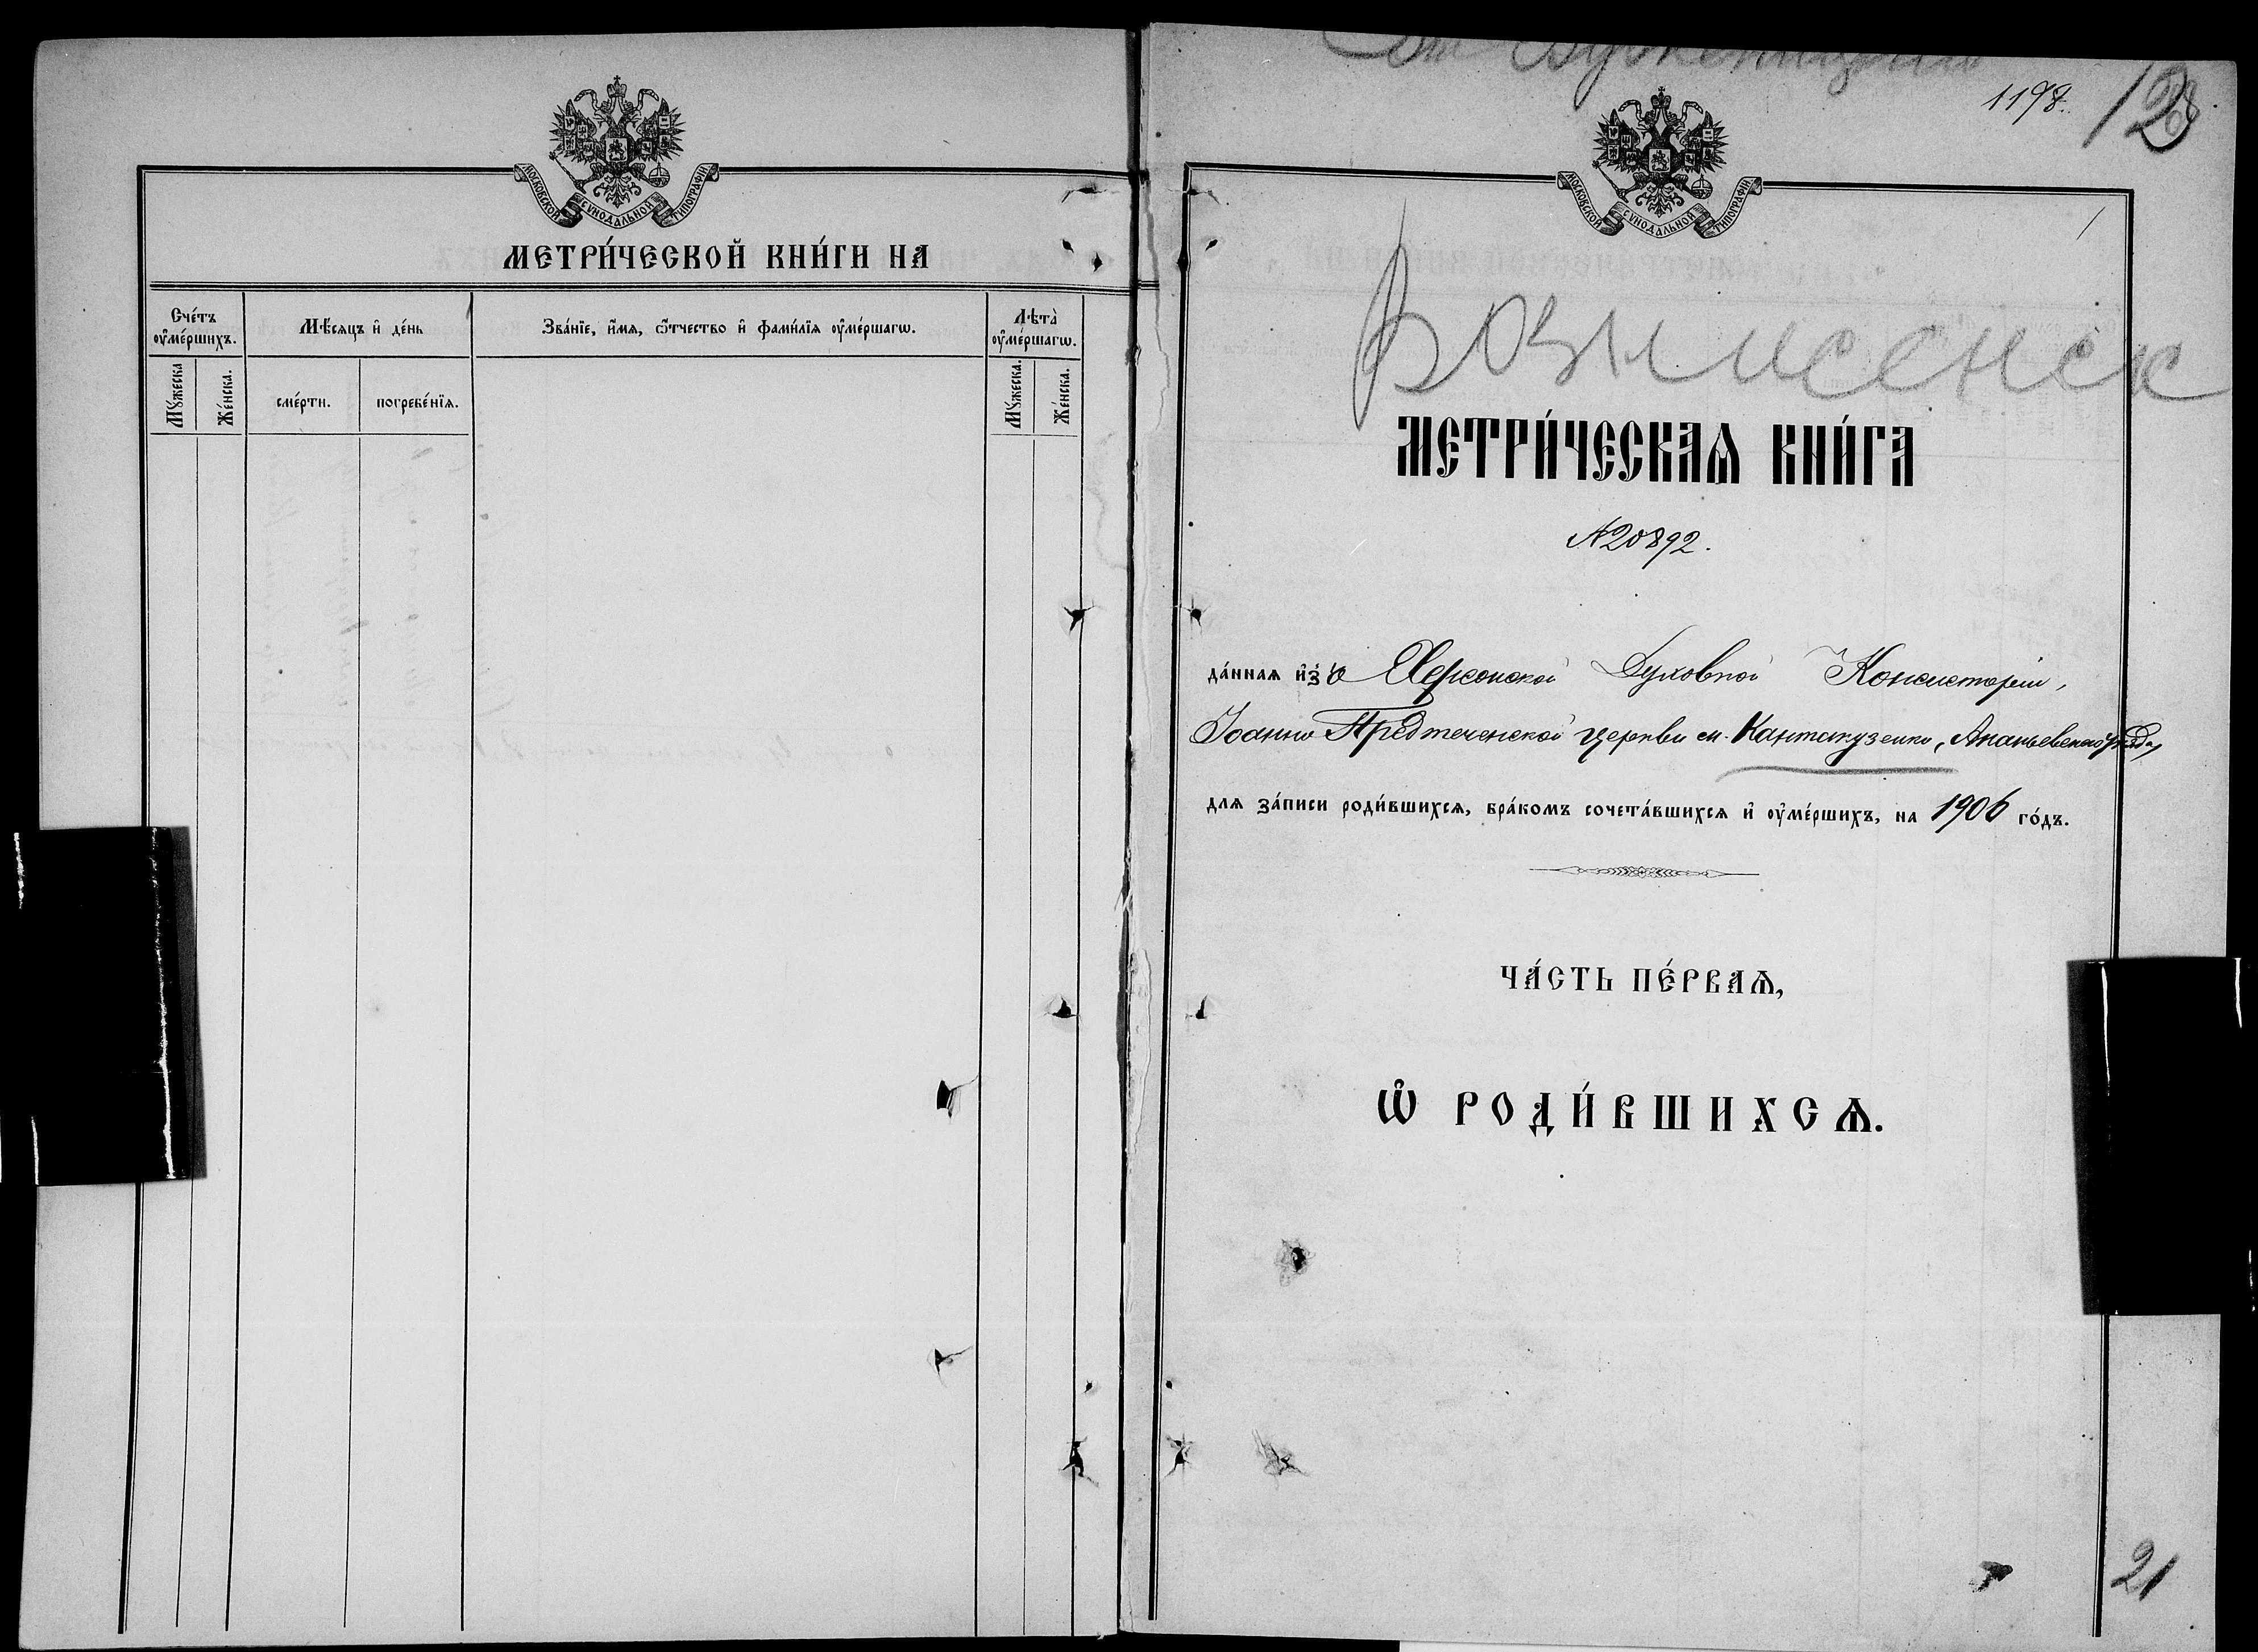 МОСКОВСКОЙ СѴНОДАЛЬНОЙ ТИПОГРАФІИ
МЕТРИ́ЧЕСКОЙ КНИ́ГИ НА
Сче́тъ оу҆ме́ршихъ.
Мѣ́сяцъ и҆ де́нь
Зва́нїе, и҆́мѧ, ѻ҆́тчество и҆ фами́лїѧ оу҆ме́ршагѡ.
Лѣ́та оу҆ме́ршагѡ.
Мꙋ́жеска
Же́нска.
сме́рти.
погребе́нїѧ.
Мꙋ́жеска.
Же́нска.
1198.
12
МОСКОВСКОЙ СѴНОДАЛЬНОЙ ТИПОГРАФІИ
1
Вознесенск
МЕТРИ́ЧЕСКАѦ КНИ́ГА
№20892.
да́ннаѧ и҆зъ Херсонской Духовной Консисторіи,
Іоанно Предтеченской церкви м. Кантакузенки, Ананьевскаго уѣзда,
длѧ за́писи роди́вшихсѧ, бра́комъ сочета́вшихсѧ и҆ оу҆ме́ршихъ, на 1906 го́дъ.
ЧА́СТЬ ПЕ́РВАѦ,
Ѽ РОДИ́ВШИХСѦ.
21